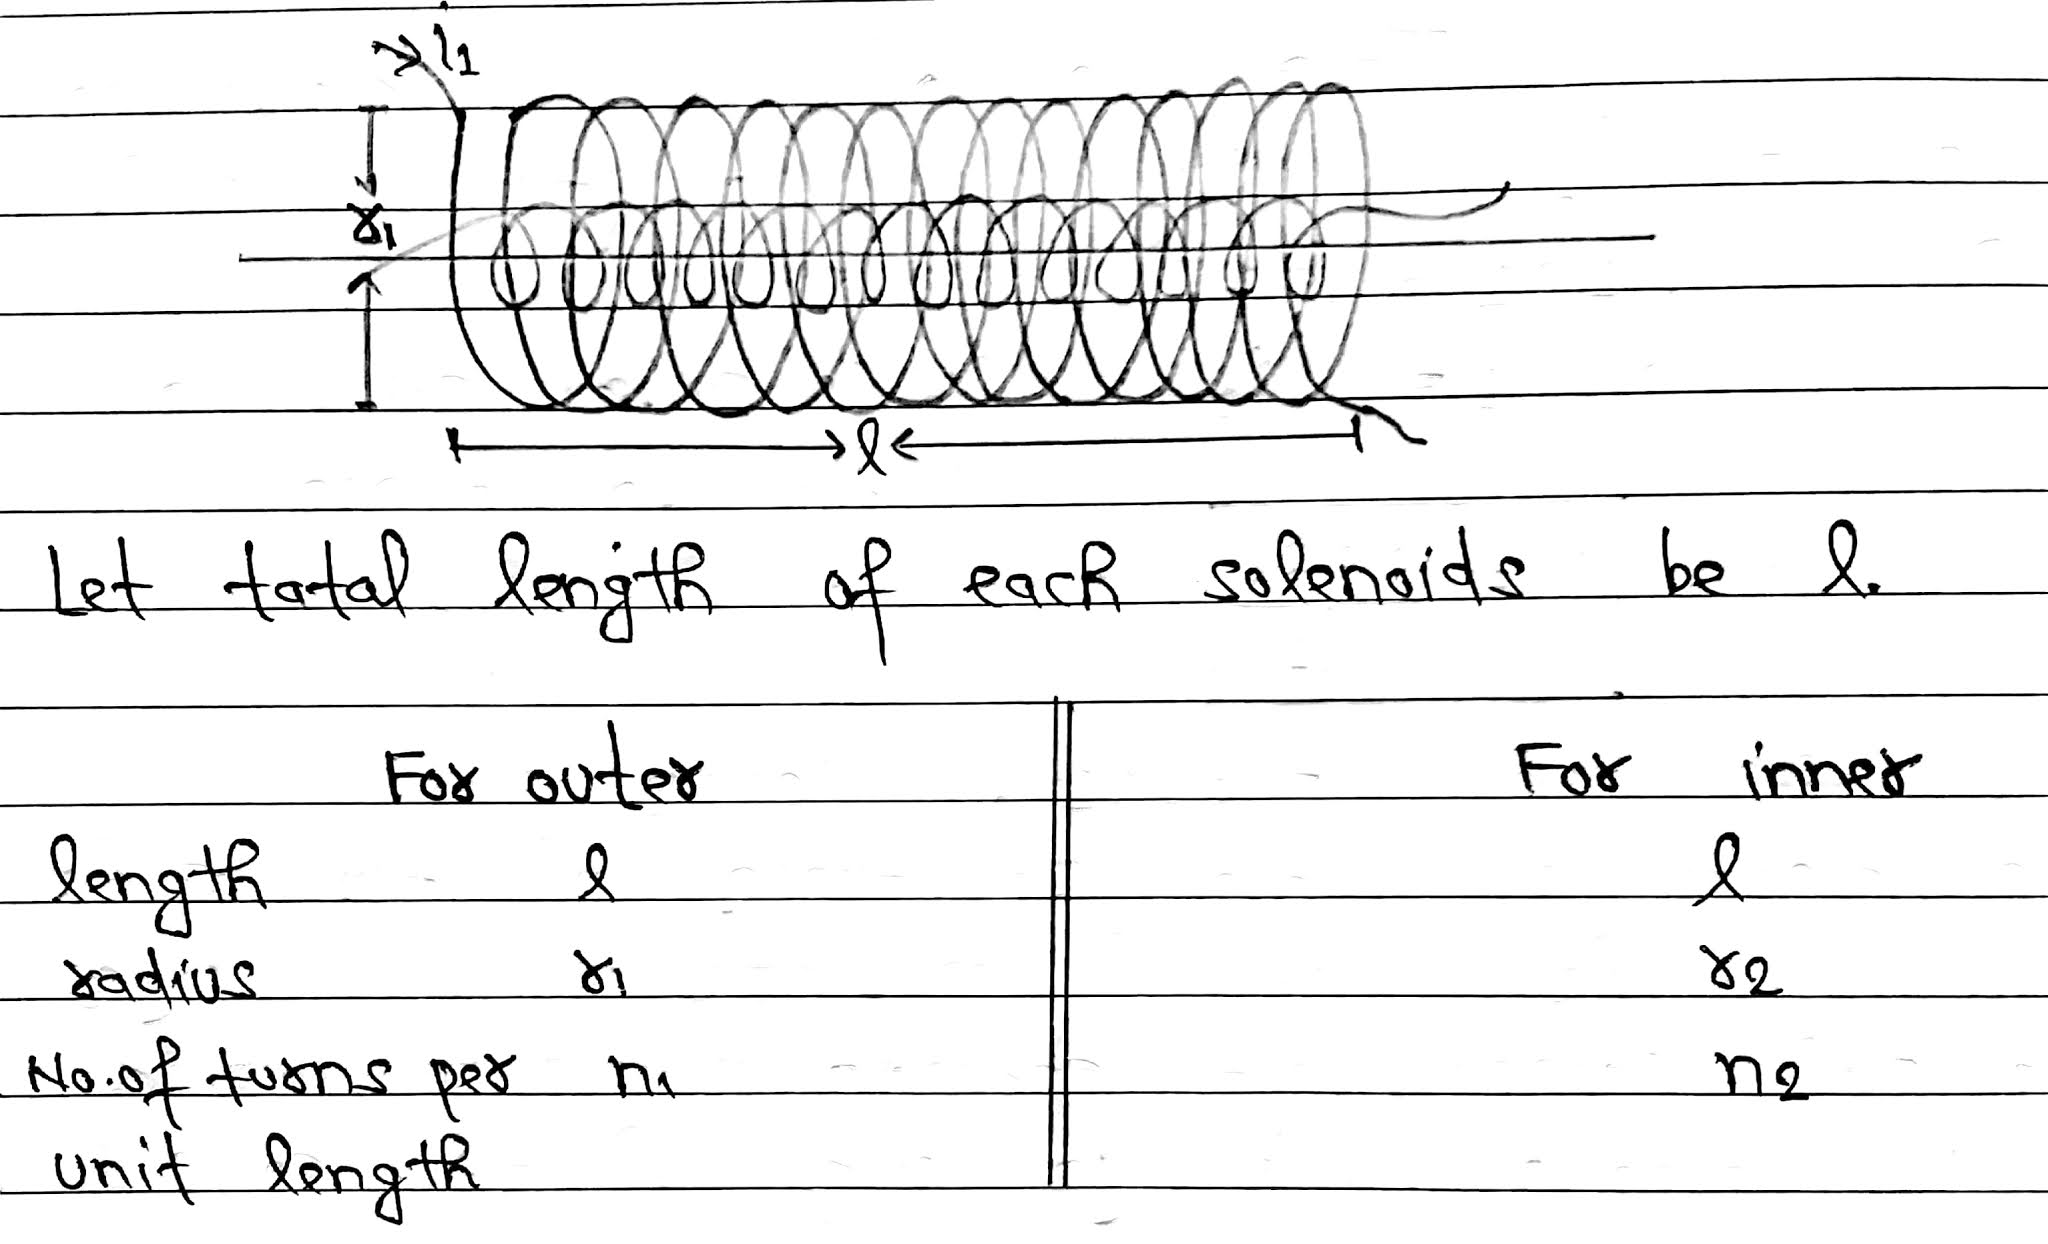 l1
r1
l
Let total length of each solenoids be l.
For outer For inner
length l l
radius r1 r2
No. of turns per n1 n2
unit length